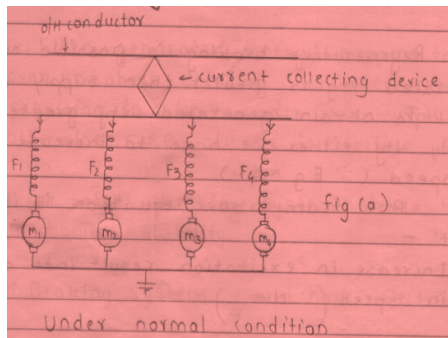 O/H conductor
current collecting device
F1 F2 F3 F4
fig (a)
m1 m2 m3 m4
Under normal condition